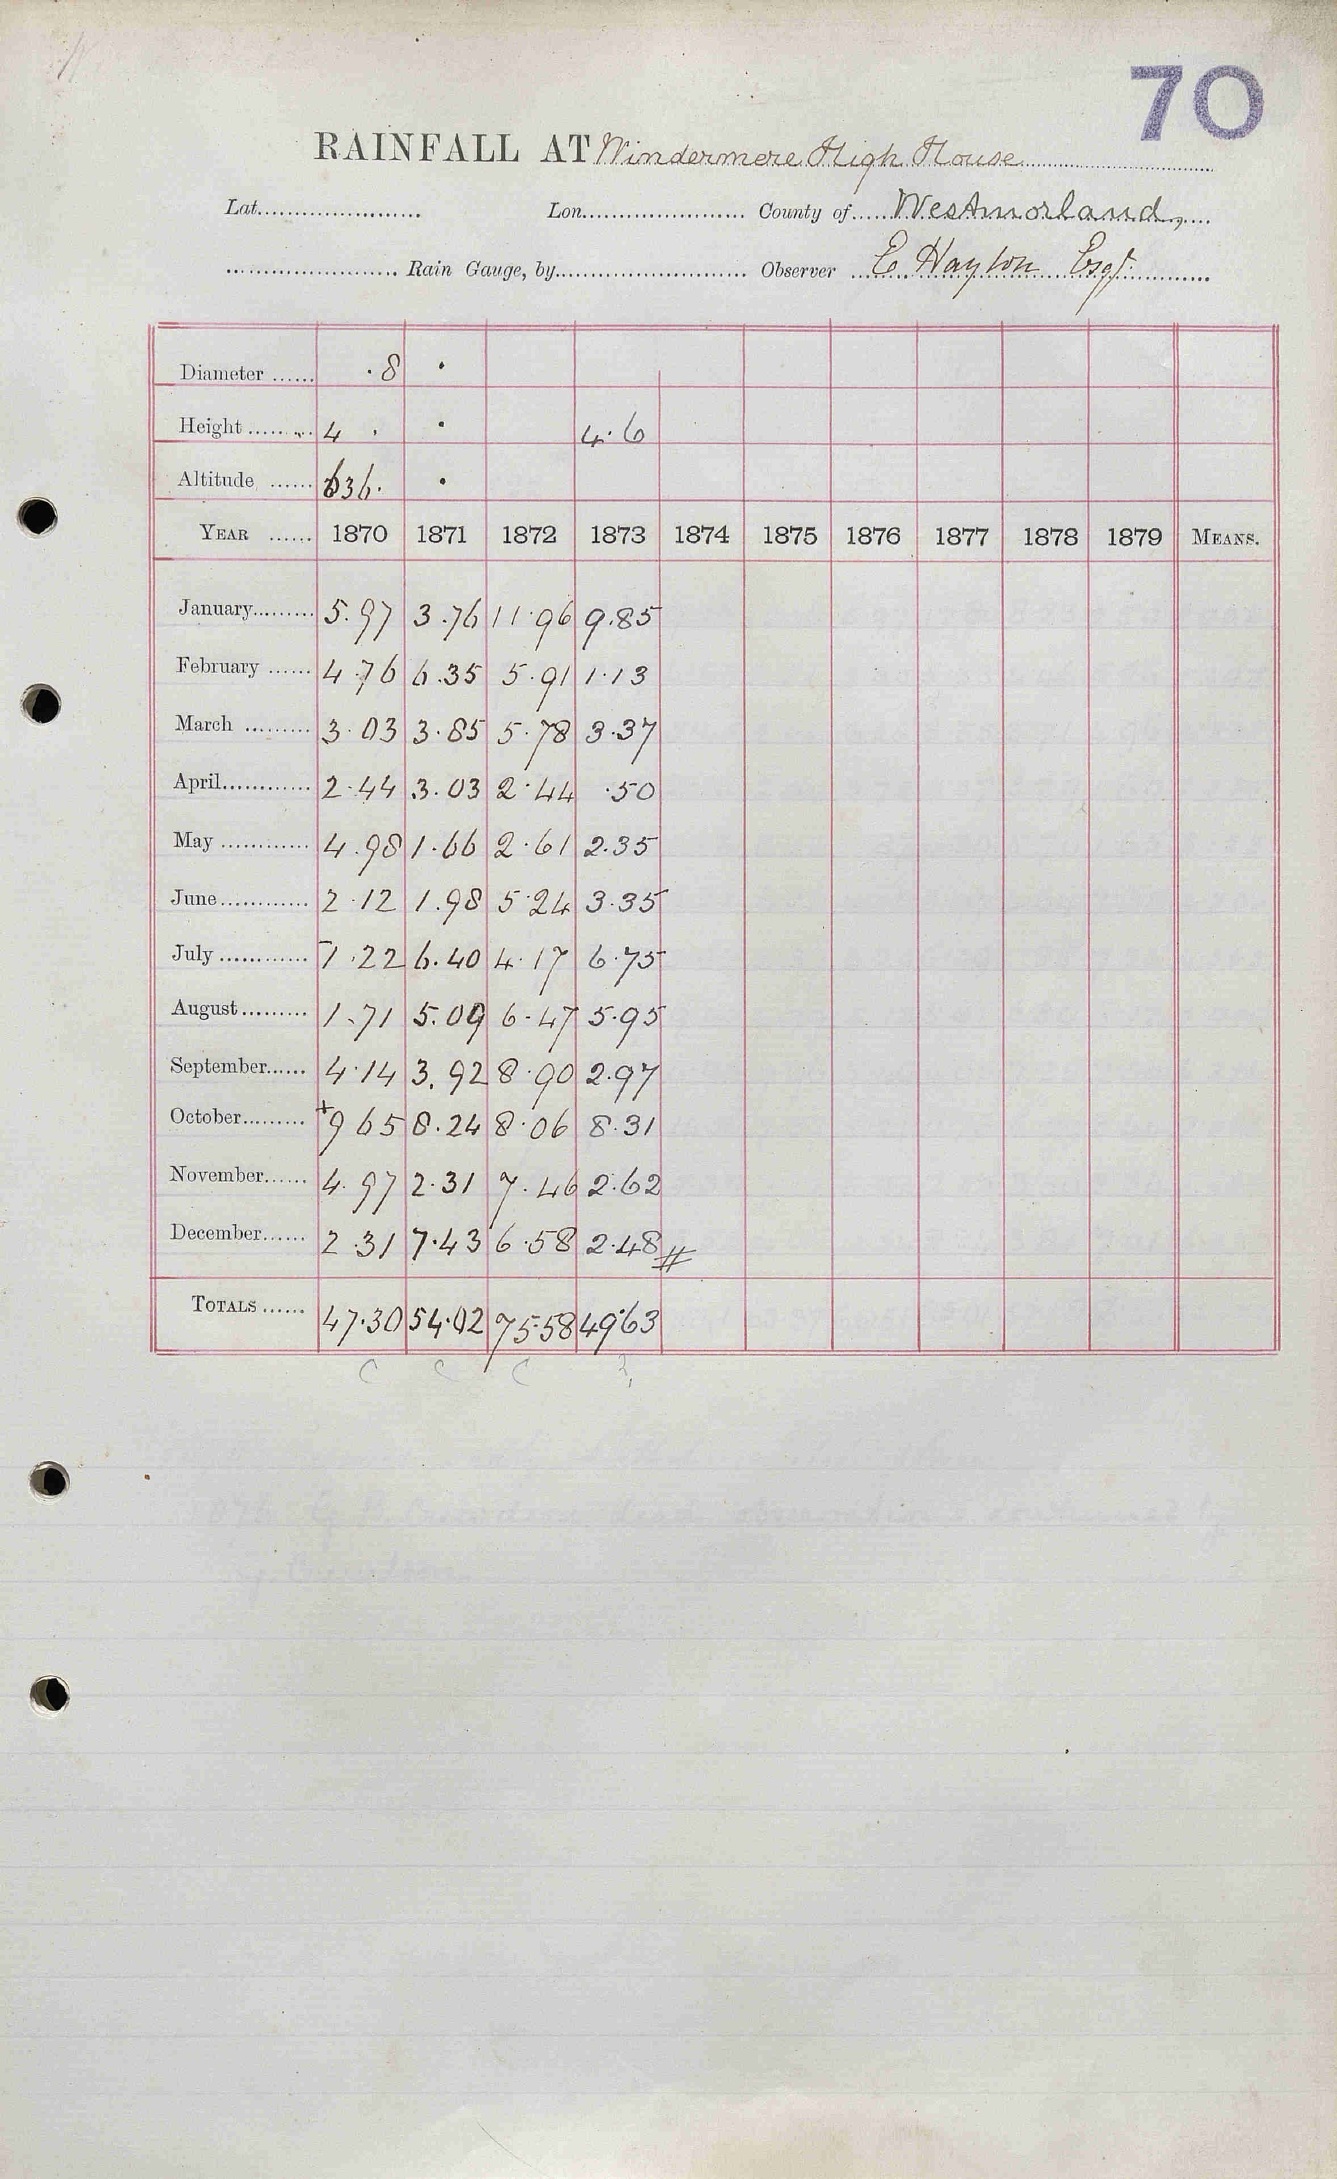 70
RAINFALL AT Windermere High House
Lat...................... Lon...................... County of..... Westmorland,
...................... Rain Gauge, by.......................... Observer E Hayton Esqr
Diameter ...... .8 .
Height ......... 4 . . 4.6
Altitude ...... 636. .
YEAR ...... 1870 1871 1872 1873 1874 1875 1876 1877 1878 1879 MEANS.
January......... 5.97 3.76 11.96 9.85
February ...... 4.76 6.35 5.91 1.13
March ......... 3.03 3.85 5.78 3.37
April............ 2.44 3.03 2.44 .50
May ............ 4.98 1.66 2.61 2.35
June............ 2.12 1.98 5.24 3.35
July ............ -1.22 6.40 4.17 6.75
August......... 1.71 5.09 6.47 5.95
September...... 4.14 3.92 8.90 2.97
October......... +9 65 8.24 8.06 8.31
November...... 4.97 2.31 7.46 2.62
December...... 2.31 7.43 6.58 2.48 #
TOTALS ...... 47.30 54.02 75.58 49.63
C C C